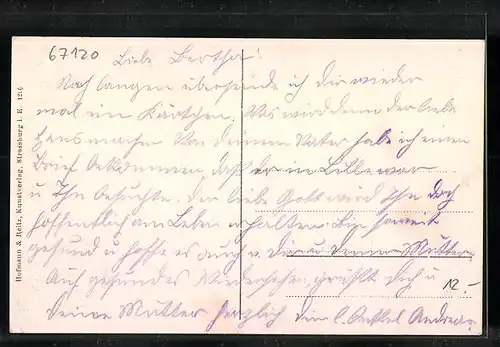 67120
Liebe Bertha!
Nach langen übersende ich dir wieder
mal ein Kärtchen. Was wird denn der liebe
Hans machen Von deinem Vater habe ich einen
Brief bekommen, daß er in Lille war
u Ihn besuchte der liebe Gott wird Ihn doch
hoffentlich am Leben erhalten. Bin soweit
gesund u hoffe es auch v. Dir u deiner Mutter.
Auf gesundes Wiedersehen grüßt Dich u
deine Mutter herzlich dein l. Onkel Andreas
12-
Hofmann & Reitz, Kunstverlag, Strassburg i. E. 1216